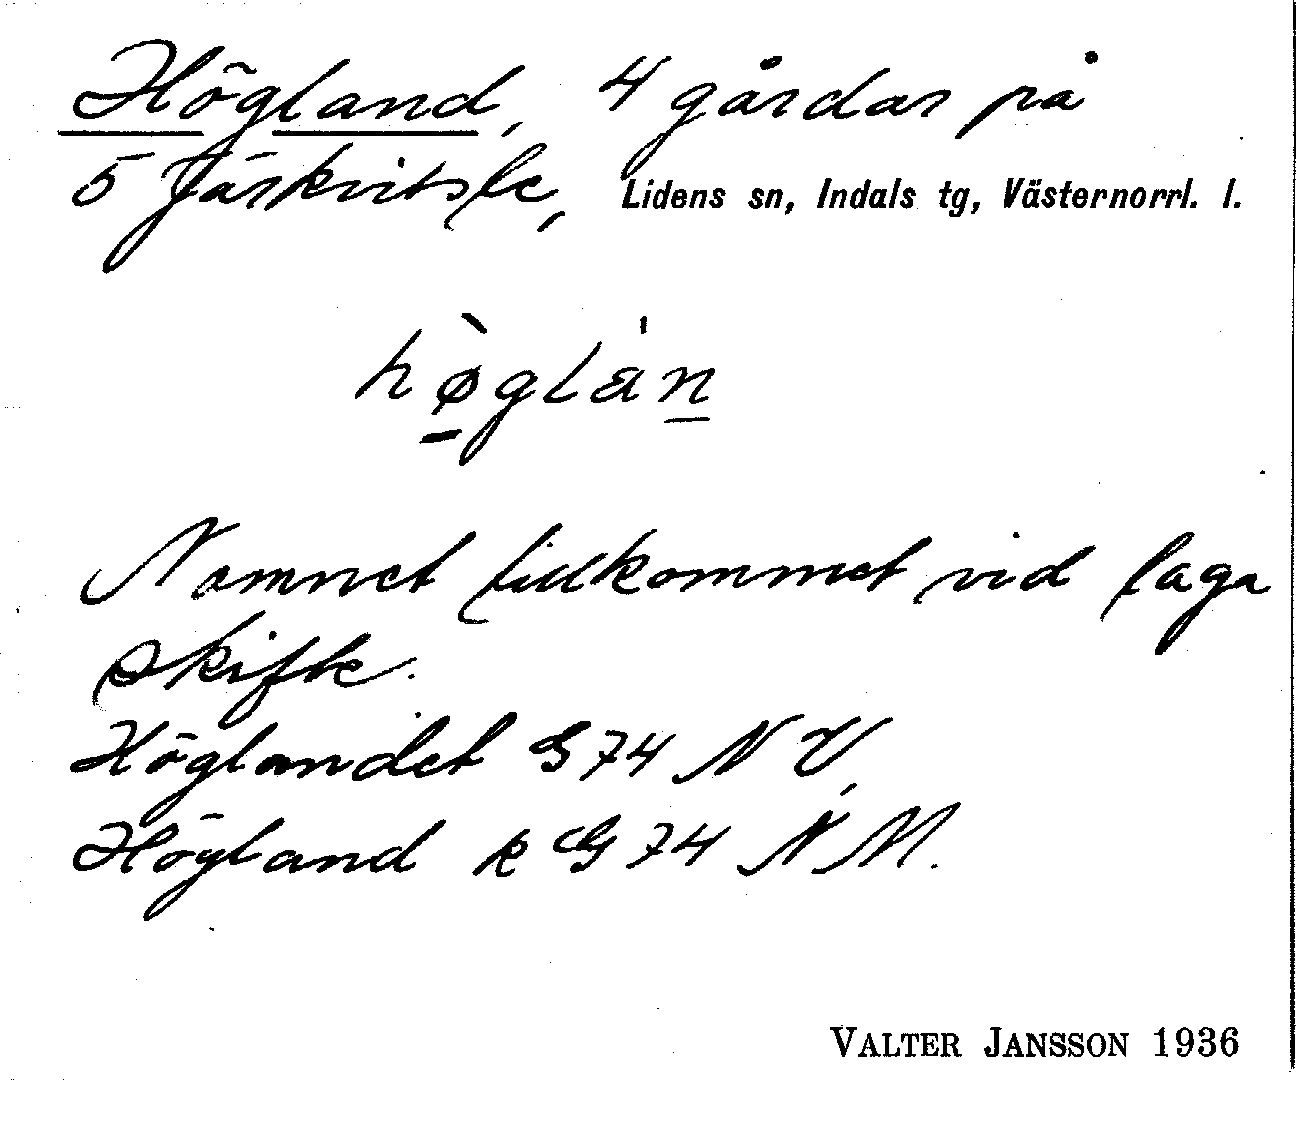 Högland, 4 gårdar på
5 Järkvitsle, Lidens sn, Indals tg, Västernorrl. l.
hø̀glàn
Namnet tillkommet vid laga
skifte.
Höglandet G 74 N V,
Högland k G 74 N M.
VALTER JANSSON 1936